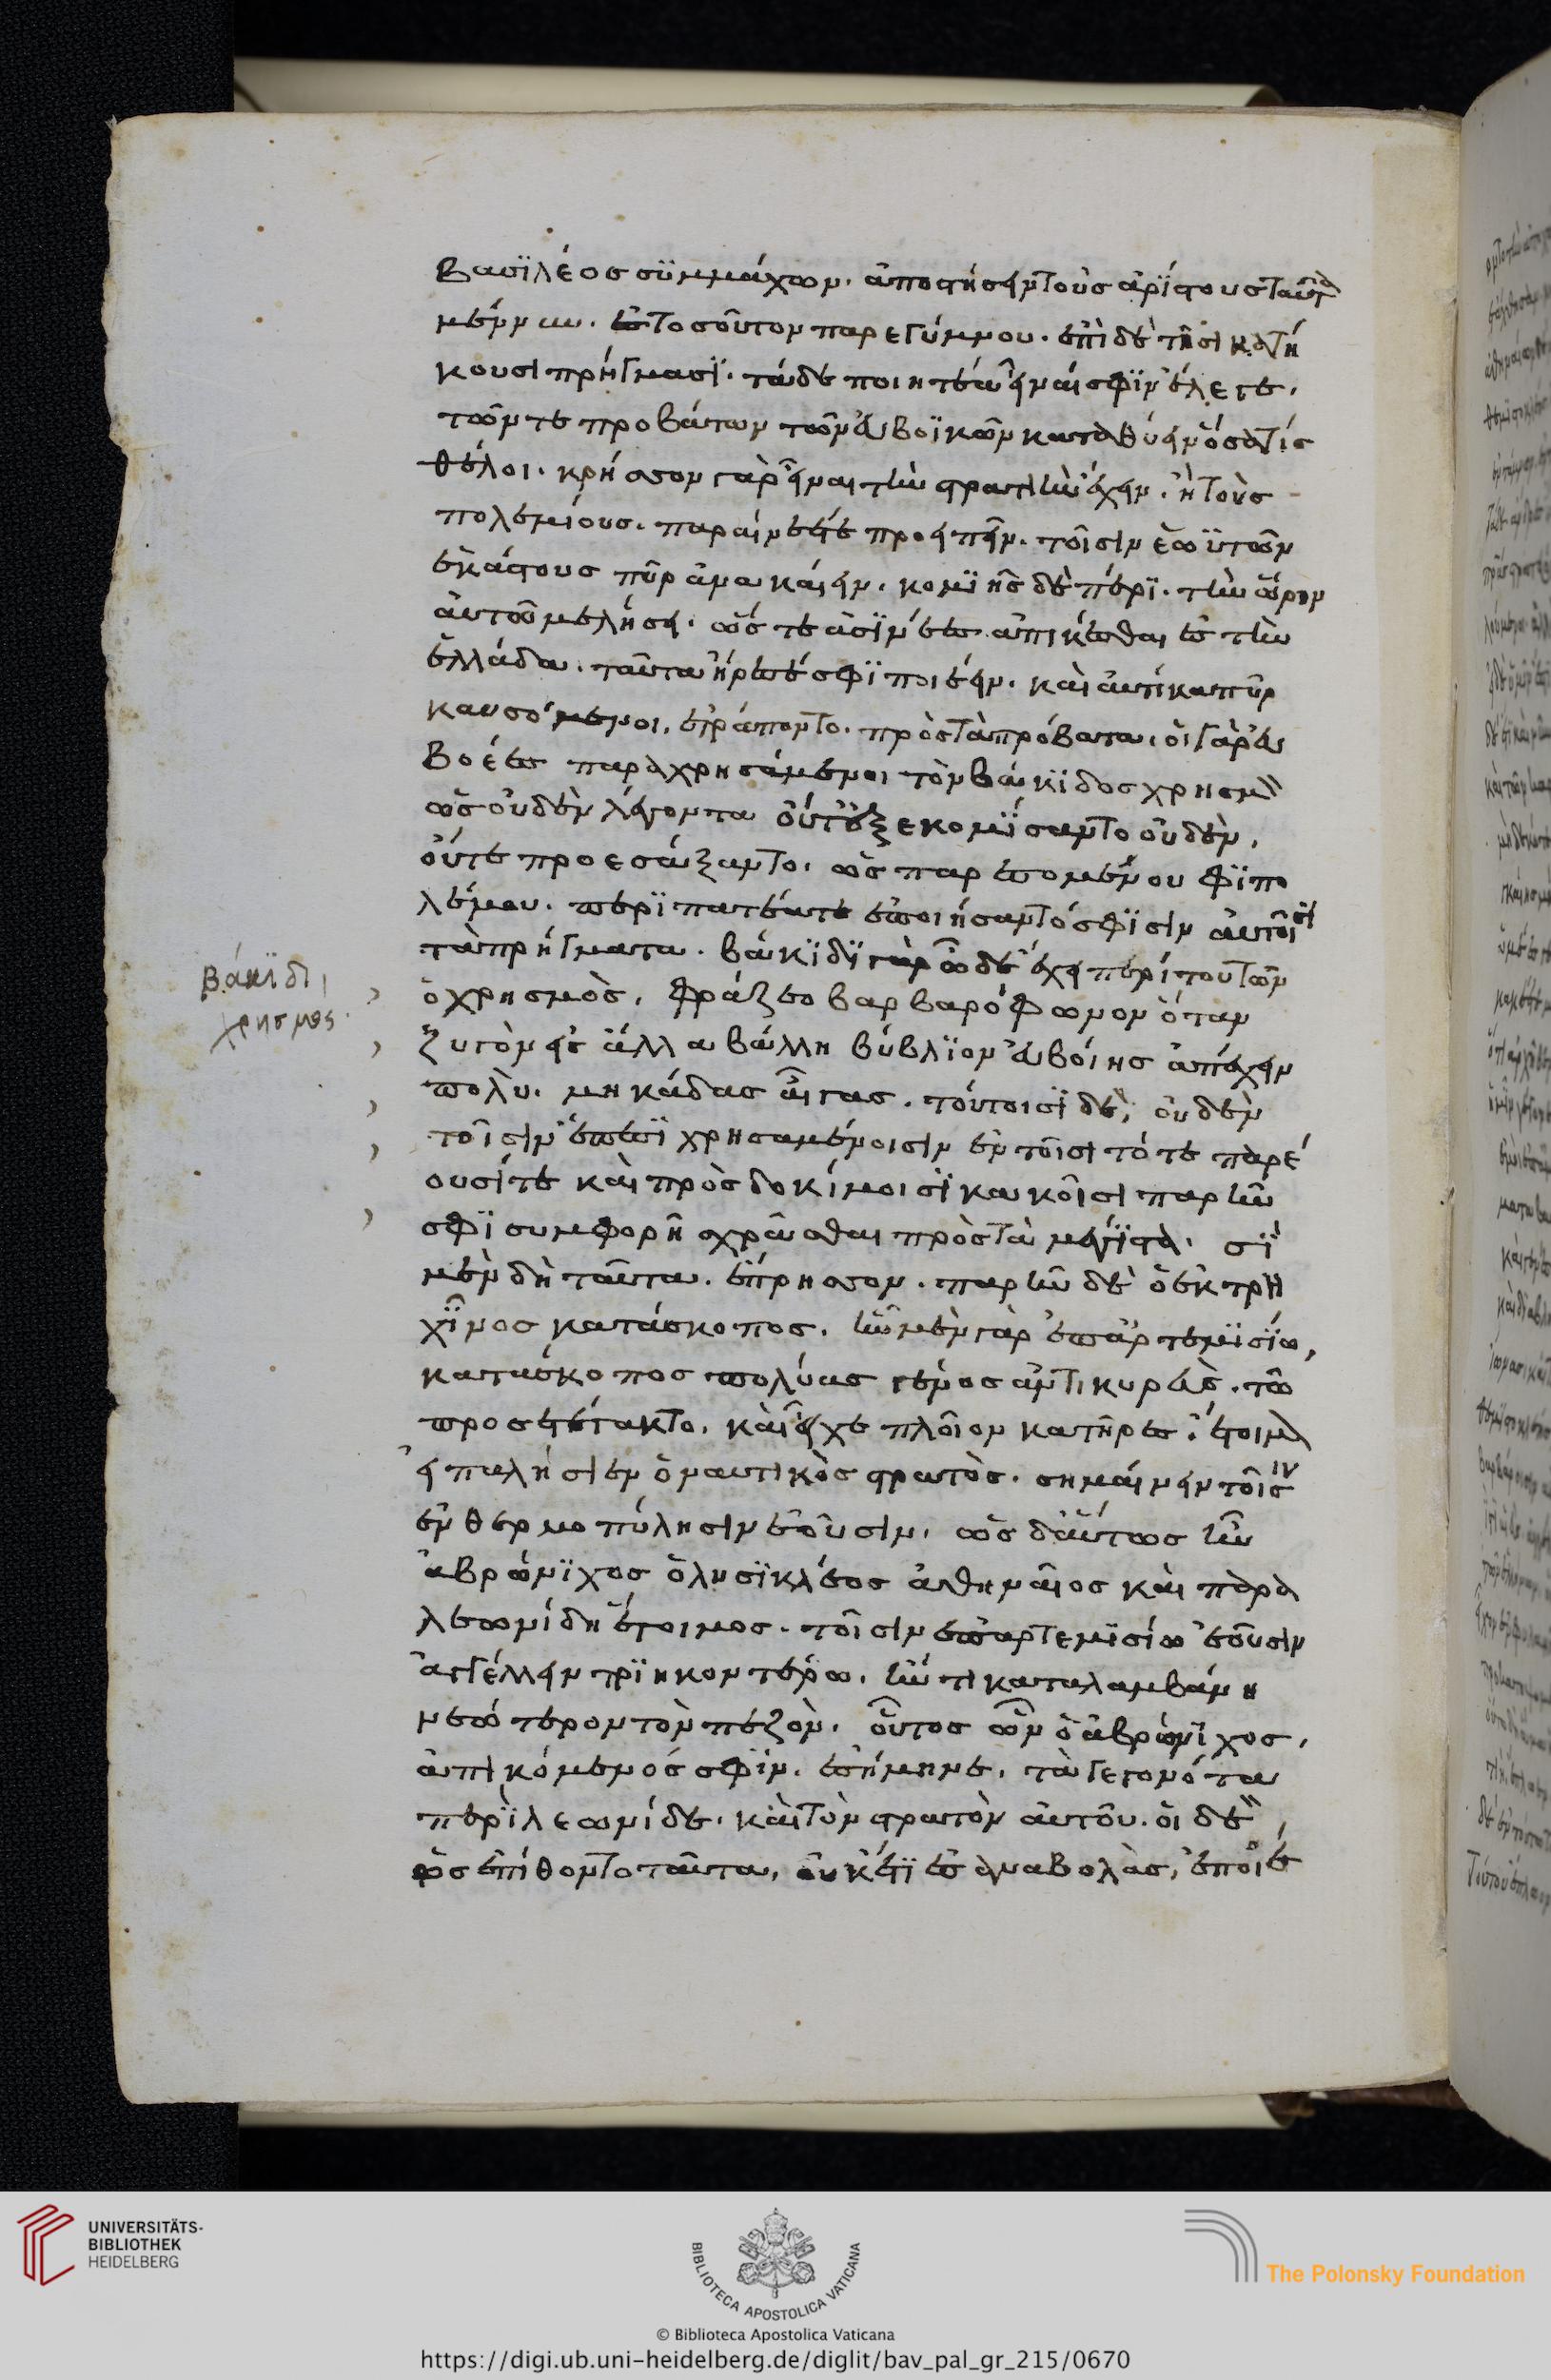 βασϊλέος συμμάχων. ἀποστήσειν τοὺς ἀρίστους ταῦτα
μέν νυν. ἐς τοσοῦτον παρεγύμνου. ἐπὶ δὲ τῆσι κατή
κουσι πρήγμασϊ. τάδε ποιητέα εἶναί σφϊν ἔλεγε.
τῶν τε προβάτων τῶν εὐβοϊκῶν καταθύειν ὅσα τίς
θέλοι. κρῆσσον γὰρ εἶναι τὴν στρατιὴν ἔχειν. ἢ τοὺς
πολεμίους. παραίνεέ τε προειπεῖν. τοῖσιν ἑωϋτῶν
ἑκάστους πῦρ ἀνακαίειν. κομϊδῆς δὲ πέρϊ. τὴν ὥρην
αὐτῶ μελήσει. ὥστε ἀσϊνέας ἀπικέσθαι ἐς τὴν
ἑλλάδα. ταῦτα ἤρεσέ σφϊ ποιέειν. καὶ αὐτίκα πῦρ
καυσόμενοι, ἐτράποντο. πρὸς τὰ πρόβατα. οἱ γὰρ εὐ
βοέες παραχρησάμενοι τὸν βάκϊδος χρησμὸν
ὡς οὐδὲν λέγοντα οὔτε ἐξεκομϊσαντο οὐδὲν,
οὔτε προεσάξαντο. ὡς παρεσομένου σφϊ πο
λέμου. περϊπατέατε ἐποιήσαντό σφϊσιν αὐτοῖσϊ
τὰ πρήγματα. βάκϊδϊ γὰρ ὧδε ἔχει περὶ τουτῶν
ὁ χρησμὸς, φράζεο βαρβαρόφωνον ὅταν
ζυγὸν εἰς ἅλλα βάλλη βύβλϊον εὐβοίης ἀπέχειν
πολὺ. μηκάδας αἶγας. τούτοισϊ δὲ, οὐδὲν
τοῖσιν ἔπεσϊ χρησαμένοισιν ἐν τοῖσι τότε παρέ
ουσί τε καὶ προσδοκίμοισϊ κακοῖσι παρῆν
σφϊ συμφορῆ χρᾶσθαι πρὸς τὰ μέγϊστα. οἱ
μὲν δὴ ταῦτα. ἔπρησσον. παρῆν δὲ ὁ ἐκ τρη
χῖνος κατάσκοπος. ἦν μὲν γὰρ ἐπ ἀρτεμϊσίω,
κατάσκοπος πολύας γένος ἀντικυρεὺς. τῶ
προσετέτακτο. καὶ εἶχε πλοῖον κατῆρες ἕτοιμα
εἰ παλήσιεν ὁ ναυτικὸς στρατὸς. σημαίνειν τοῖσιν
ἐν θερμοπύλησιν ἐοῦσιν. ὡς δ' αὕτως ἦν
ἀβρώνϊχος ὁ λυσϊκλέεος ἀθηναῖος καὶ παρὰ
λεωνίδη ἕτοιμος. τοῖσιν ἐπ ἀρτεμϊσίω ἐοῦσιν
ἀγγέλλειν τρϊηκοντέρω. ἤν τι καταλαμβάνη
νεώτερον τὸν πεζὸν. οὗτος ὦν ὁ ἀβρώνϊχος,
ἀπικόμενός σφϊν. ἐσήμηνε. τὰ γεγονότα
περὶ λεωνίδε. καὶ τὸν στρατὸν αὐτοῦ. οἱ δὲ,
ὡς ἐπίθοντο ταῦτα, οὐκέτϊ ἐς ἀναβολὰς, ἐποιέ
Βάκϊδι
χρησμος
UNIVERSITÄTS-
BIBLIOTHEK
HEIDELBERG
BIBLIOTECA APOSTOLICA VATICANA
The Polonsky Foundation
© Biblioteca Apostolica Vaticana
https://digi.ub.uni-heidelberg.de/diglit/bav_pal_gr_215/0670